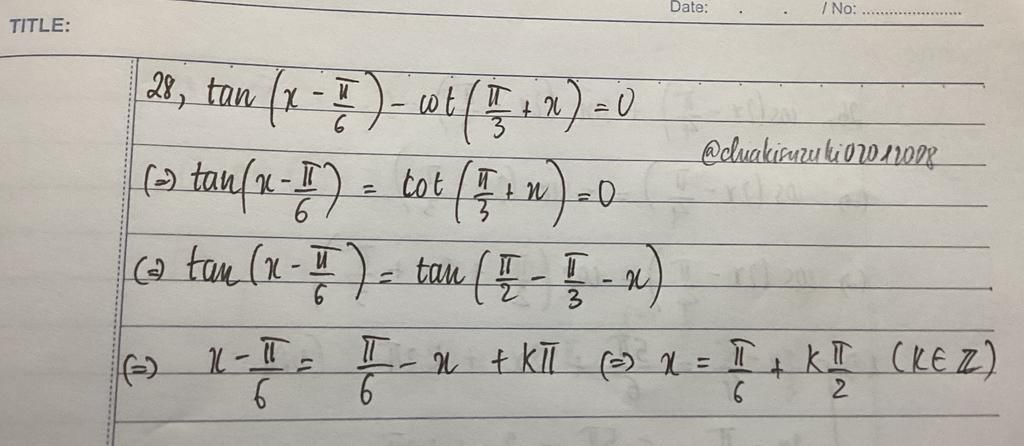 Date: . . / No: ......................
TITLE:
28, tan (x - π/6) - cot (π/3 + x) = 0
@chuakisuzuki02012008
(=) tan(x - π/6) = cot (π/3 + x) = 0
(=) tan (x - π/6) = tan (π/2 - π/3 - x)
(=) x - π/6 = π/6 - x + kπ (=) x = π/6 + k π/2 (k ∈ ℤ)